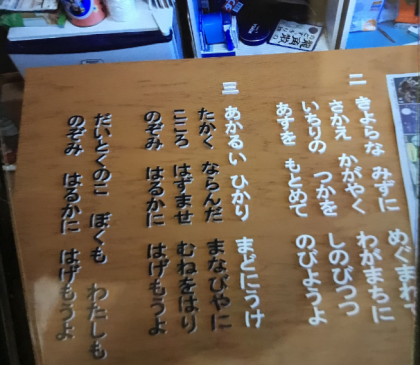 二
きよらな みずに めぐまれ
さかえ かがやく わがまちに
いちりの つかを しのびつつ
あすを もとめて のびようよ
三
あかるい ひかり まどにうけ
たかく ならんだ まなびやに
こころ はずませ むねをはり
のぞみ はるかに はげもうよ
だいとくのこ ぼくも わたしも
のぞみ はるかに はげもうよ